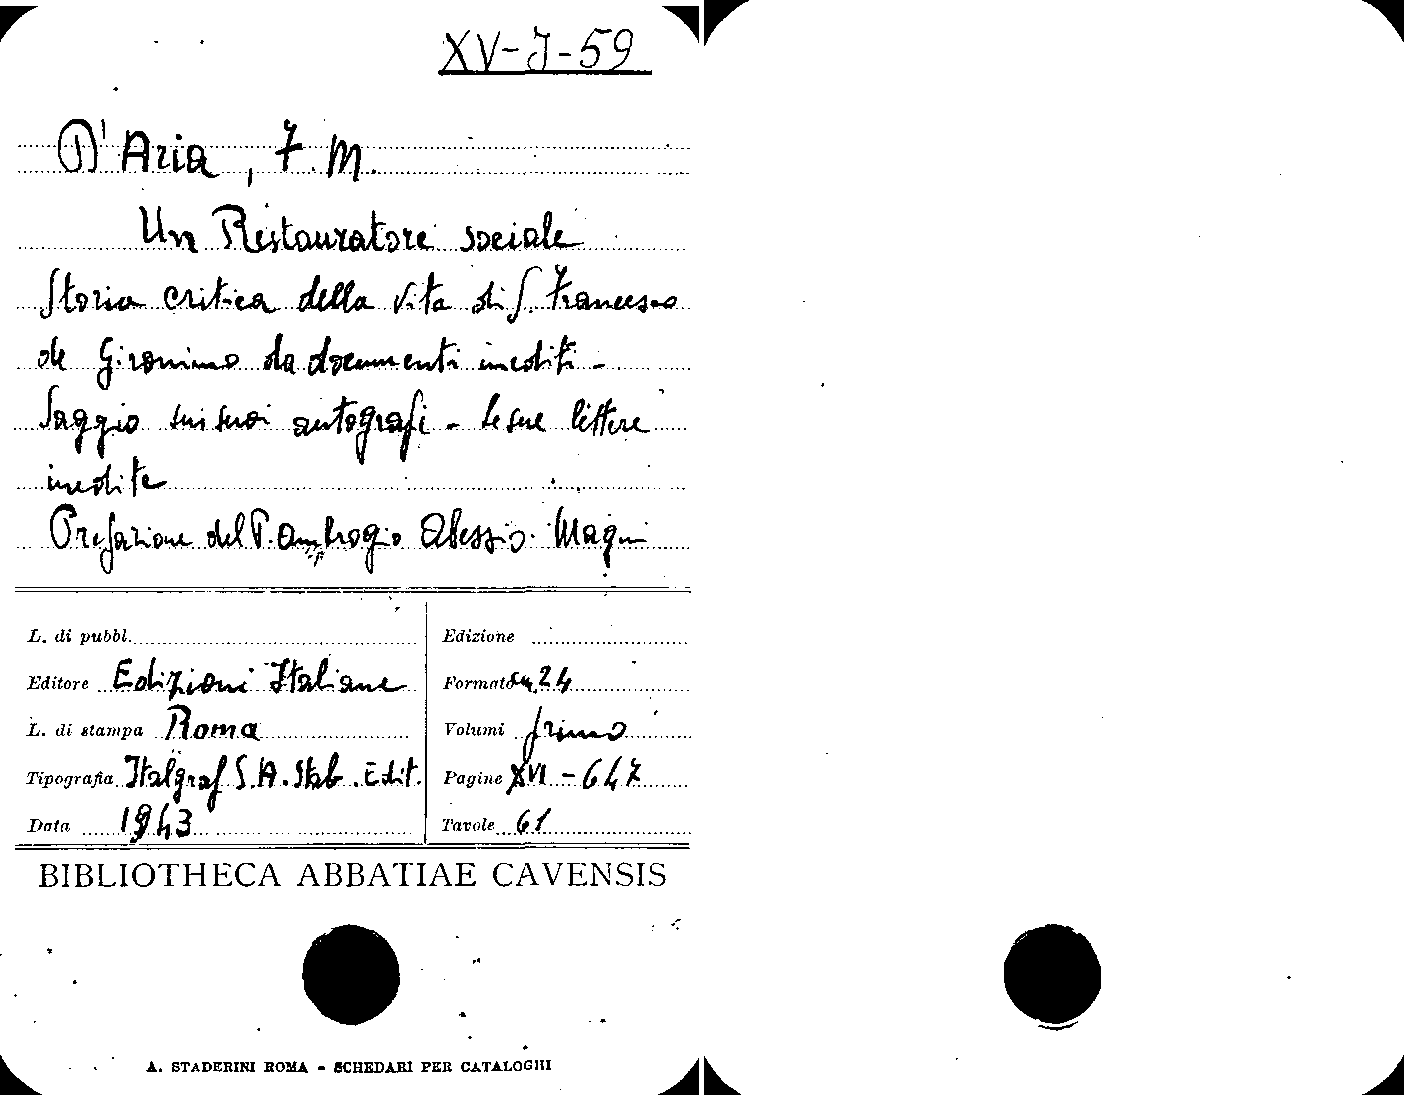 XV-J-59
D'Aria, F. M.
Un Restauratore sociale
Storia critica della vita di S. Francesco
de Gironimo da documenti inediti -
Saggio sui suoi autografi - Le sue lettere
inedite
Prefazione del P. Ambrogio Alessio Magni
L. di pubbl.
Editore Edizioni Italiane
L. di stampa Roma
Tipografia Italgraf S.A. Stab. Edit.
Data 1943
Edizione
Formato cm. 24
Volumi primo
Pagine XVI - 647
Tavole 61
BIBLIOTHECA ABBATIAE CAVENSIS
A. STADERINI ROMA - SCHEDARI PER CATALOGHI